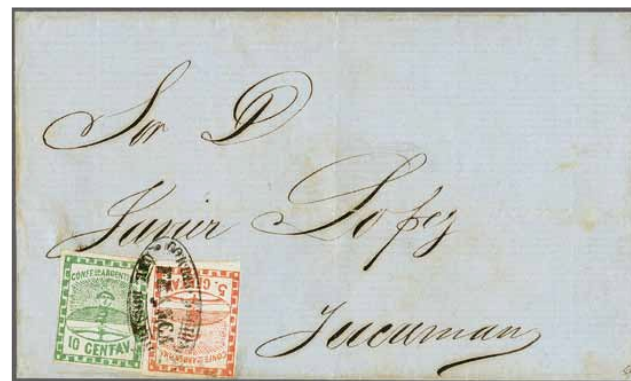 Sor D
Javier Lopez
Tucuman
CONFEon ARGENTINA
10 CENTAV.
5. CENTAV.
CONFEon ARGENTINA